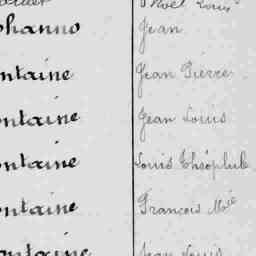 Noël Louis
ohanno Jean
ntaine Jean Pierre
ntaine Jean Louis
ntaine Louis Théophile
ntaine François M^ie
ntaine Jean Louis